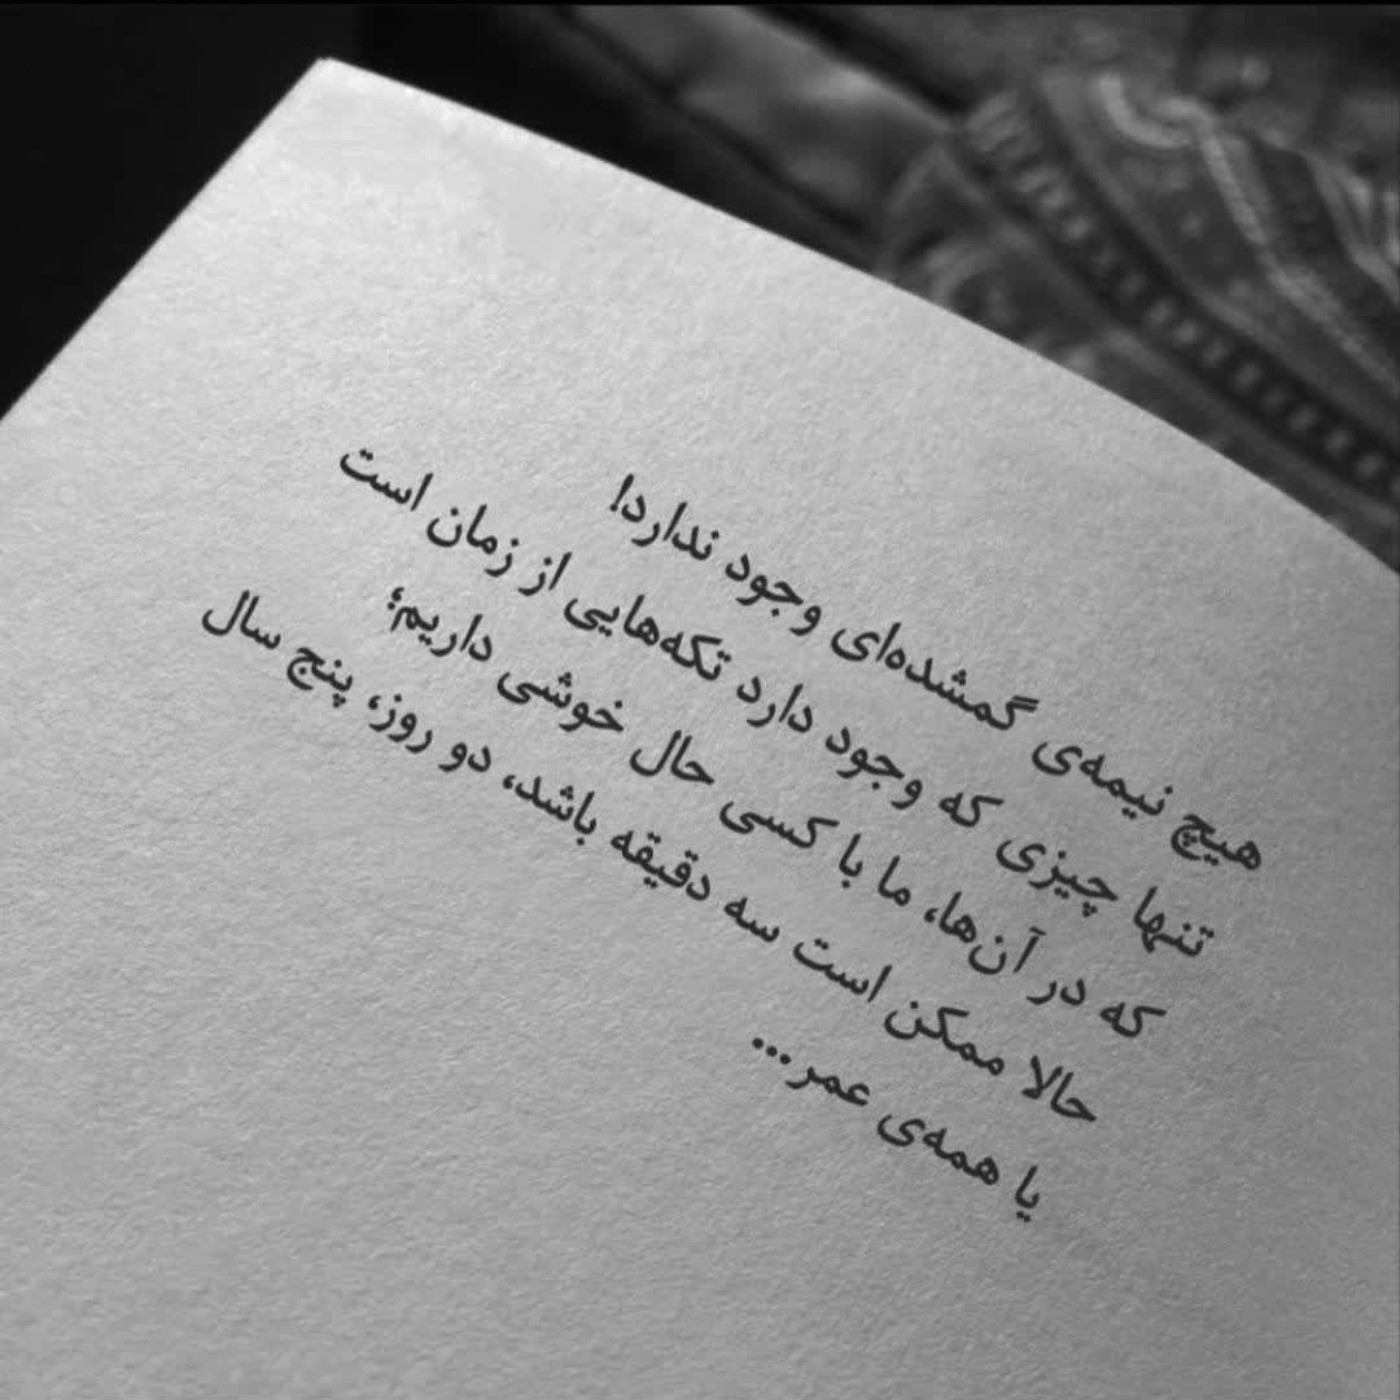 هیچ نیمه‌ی گمشده‌ای وجود ندارد!
تنها چیزی که وجود دارد تکه‌هایی از زمان است
که در آن‌ها، ما با کسی حال خوشی داریم؛
حالا ممکن است سه دقیقه باشد، دو روز، پنج سال
یا همه‌ی عمر...